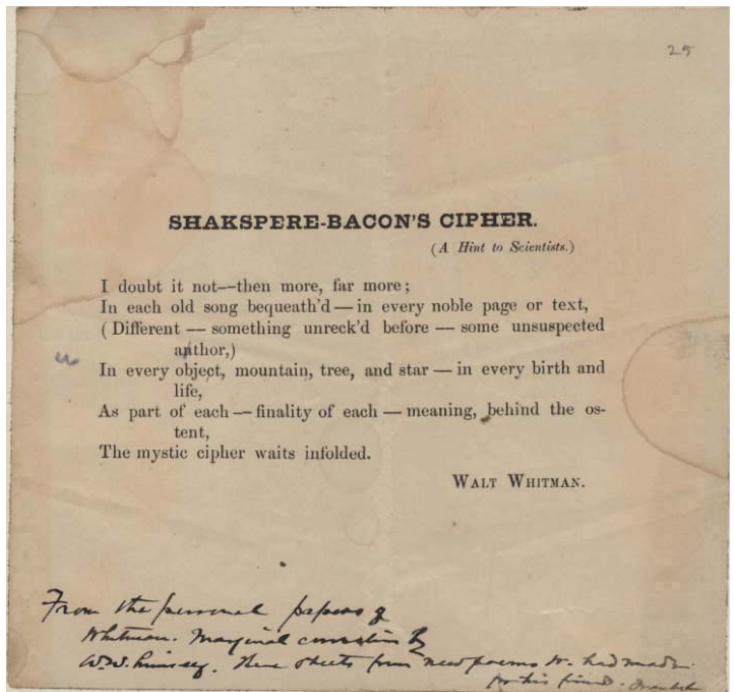 25
SHAKSPERE-BACON'S CIPHER.
(A Hint to Scientists.)
I doubt it not—then more, far more;
In each old song bequeath'd — in every noble page or text,
(Different — something unreck'd before — some unsuspected
anthor,)
u
In every object, mountain, tree, and star — in every birth and
life,
As part of each — finality of each — meaning, behind the os-
tent,
The mystic cipher waits infolded.
WALT WHITMAN.
From the personal papers of
Whitman. Marginal correction by
W.W. himself. These sheets from new poems W. had made
for his friends.